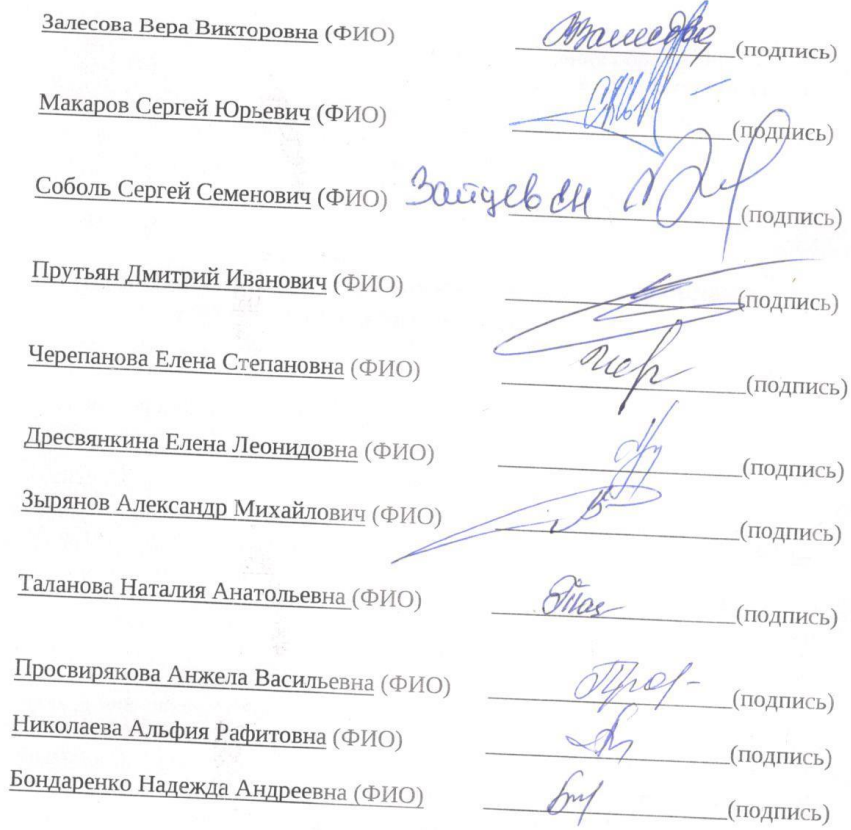 Залесова Вера Викторовна (ФИО) (подпись)
Макаров Сергей Юрьевич (ФИО) (подпись)
Соболь Сергей Семенович (ФИО) Зайцев СН (подпись)
Прутьян Дмитрий Иванович (ФИО) (подпись)
Черепанова Елена Степановна (ФИО) (подпись)
Дресвянкина Елена Леонидовна (ФИО) (подпись)
Зырянов Александр Михайлович (ФИО) (подпись)
Таланова Наталия Анатольевна (ФИО) (подпись)
Просвирякова Анжела Васильевна (ФИО) (подпись)
Николаева Альфия Рафитовна (ФИО) (подпись)
Бондаренко Надежда Андреевна (ФИО) (подпись)